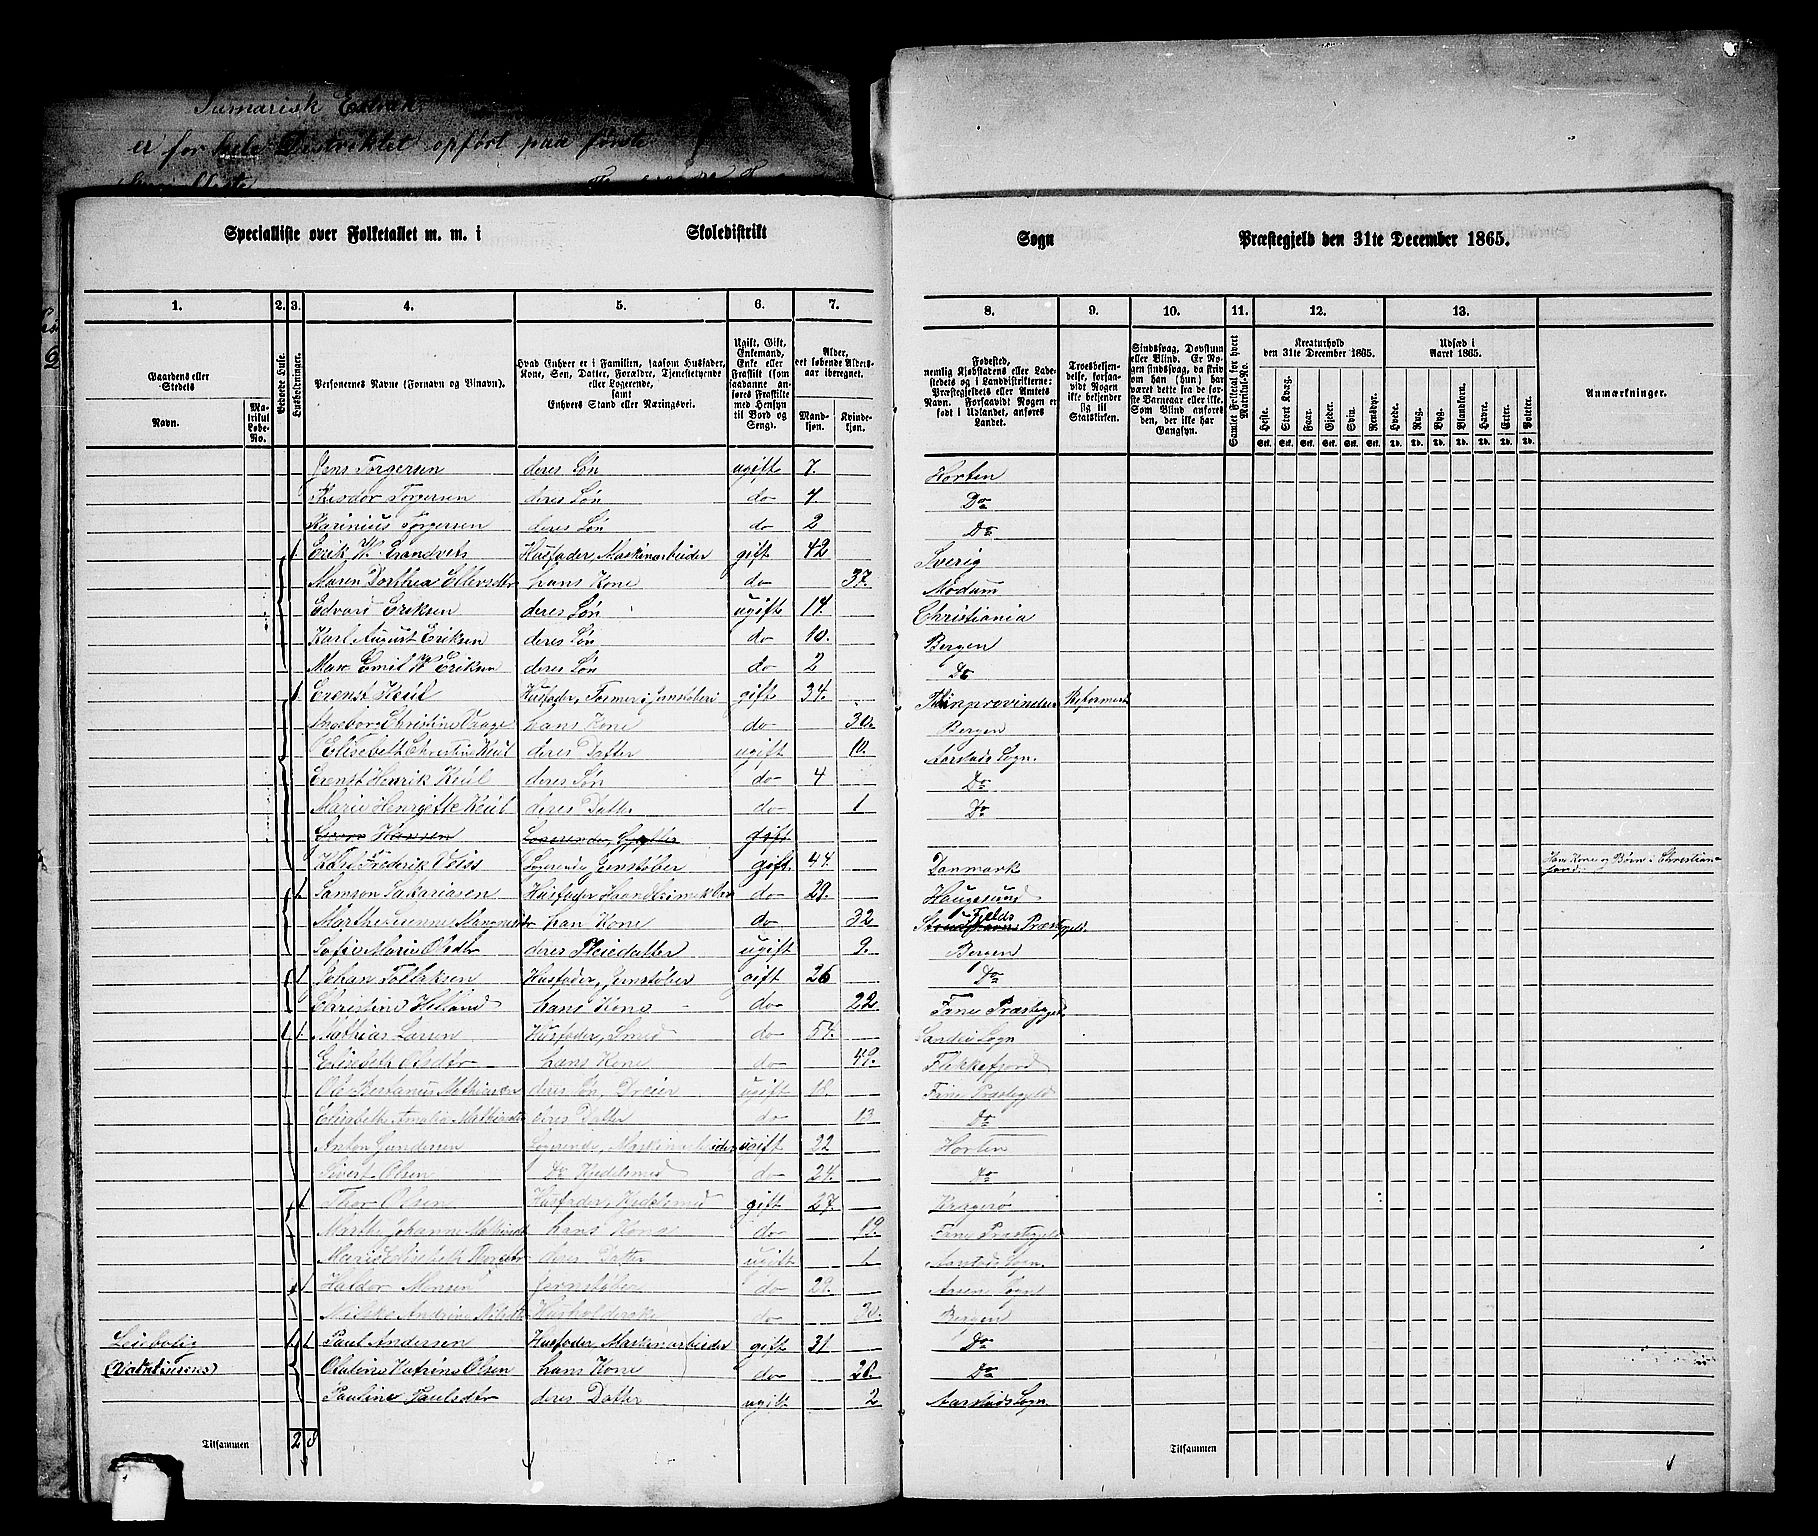 Sumarisk Extract
er for hele Distriktet opført paa første
Specialliste over Folketallet m. m. i Skoledistrikt Sogn Præstegjeld den 31te December 1865.
1. 2. 3. 4. 5. 6. 7. 8. 9. 10. 11. 12. 13.
Gaardens eller Stedets
Navn.
Matrikul Løbe-No.
Beboede Huse.
Husholdninger.
Personernes Navne (Fornavn og Tilnavn).
Hvad Enhver er i Familien, saasom Husfader, Kone, Søn, Datter, Forældre, Tjenestetyende eller Logerende, samt Enhvers Stand eller Næringsvei.
Ugift, Gift, Enkemand, Enke eller Fraskilt (som saadanne anføres Fraskilte med Hensyn til Bord og Seng).
Alder, det løbende Aldersaar iberegnet.
Mandkjøn. Kvindekjøn.
Fødested, nemlig Kjøbstadens eller Ladestedets og i Landdistrikterne: Præstegjeldets eller Amtets Navn. Forsaavidt Nogen er født i Udlandet, anføres Landet.
Troesbekjendelse, forsaavidt Nogen ikke bekjender sig til Statskirken.
Sindssvag, Døvstum eller Blind. Er Nogen sindssvag, da skriv om han (hun) har været dette fra de første Barneaar eller ikke. Som Blind anføres den, der ikke har Gangsyn.
Samlet Folketal for hvert Matrikul-No.
Kreaturhold den 31te December 1865.
Heste. Stort Kvæg. Faar. Gjeder. Svin. Rensdyr.
Udsæd i Aaret 1865.
Hvede. Rug. Byg. Blandkorn. Havre. Erter. Poteter.
Anmærkninger.
Jens Torgersen deres Søn ugift 7. Horten
Theodor Torgersen deres Søn do 4 Do
Marinius Torgersen deres Søn do 2 Do
1 Erik W. Husfader, Maskinarbeider gift 42 Sverig
Maren Dorthea hans Kone do 37. Modum
Edvard Eriksen deres Søn ugift 14. Christiania
Karl August Eriksen deres Søn do 10. Bergen
Max Emil W Eriksen deres Søn do 2 Do
1 Erenst Keül Husfader, Former i Jernstøberi gift 34. Rhinprovindsen Reformert
Christine hans Kone do 30. Bergen
Elisebeth Christine Keül deres Datter ugift 10. Aarstads Sogn.
Erenst Henrik Keül deres Søn do 4 Do
Marie Henrgette Keül deres Datter do 1 Do
Hansen Logerende, gift
Karl Frederik Logerende Jernstøber gift 44. Danmark Hans Kone og Børn i Christiansand
1 Samson Sakariasen Husfader do 29. Haugesund
Marthe hans Kone do 32 Fjelds Præstegjeld
Sofie Marie Olsdtr deres Pleiedatter ugift 9. Bergen
1 Johan Tollaksen Husfader, Jernstøber gift 26 Do
Christine hans Kone do 22. Fane Præstegjeld
1 1 Mathias Larsen Husfader, Smed do 54. Sogn
Elisabeth Olsdtr hans Kone do 49. Flekkefjord
Ole Bertanius Mathiasen deres Søn, Dreier ugift 18. Fane Præstegjeld
Elisabeth Amalia deres Datter do 13 Do
Anton Gundersen Logerende, Maskinarbeider ugift 22 Horten
Sivert Olsen Do Kjedelsmed do 24. do
1 Thor Olsen Husfader, Kjedelsmed gift 27. Kragerø
Marthe Johanne hans Kone do 19. Fane Præstegjeld
Marie Elisabeth deres Datter ugift 1 Aarstads Sogn.
1 Haldor Monsen Jernstøber do 29. Sogn
Andrine Husholderske do 30. Bergen
1 1 Paul Andersen Husfader, Maskinarbeider gift 31 Do
Oline Katrine Olsen hans Kone do 28. Do
Pauline Paulsdtr deres Datter ugift 2 Aarstads Sogn.
Tilsammen 2 8 Tilsammen